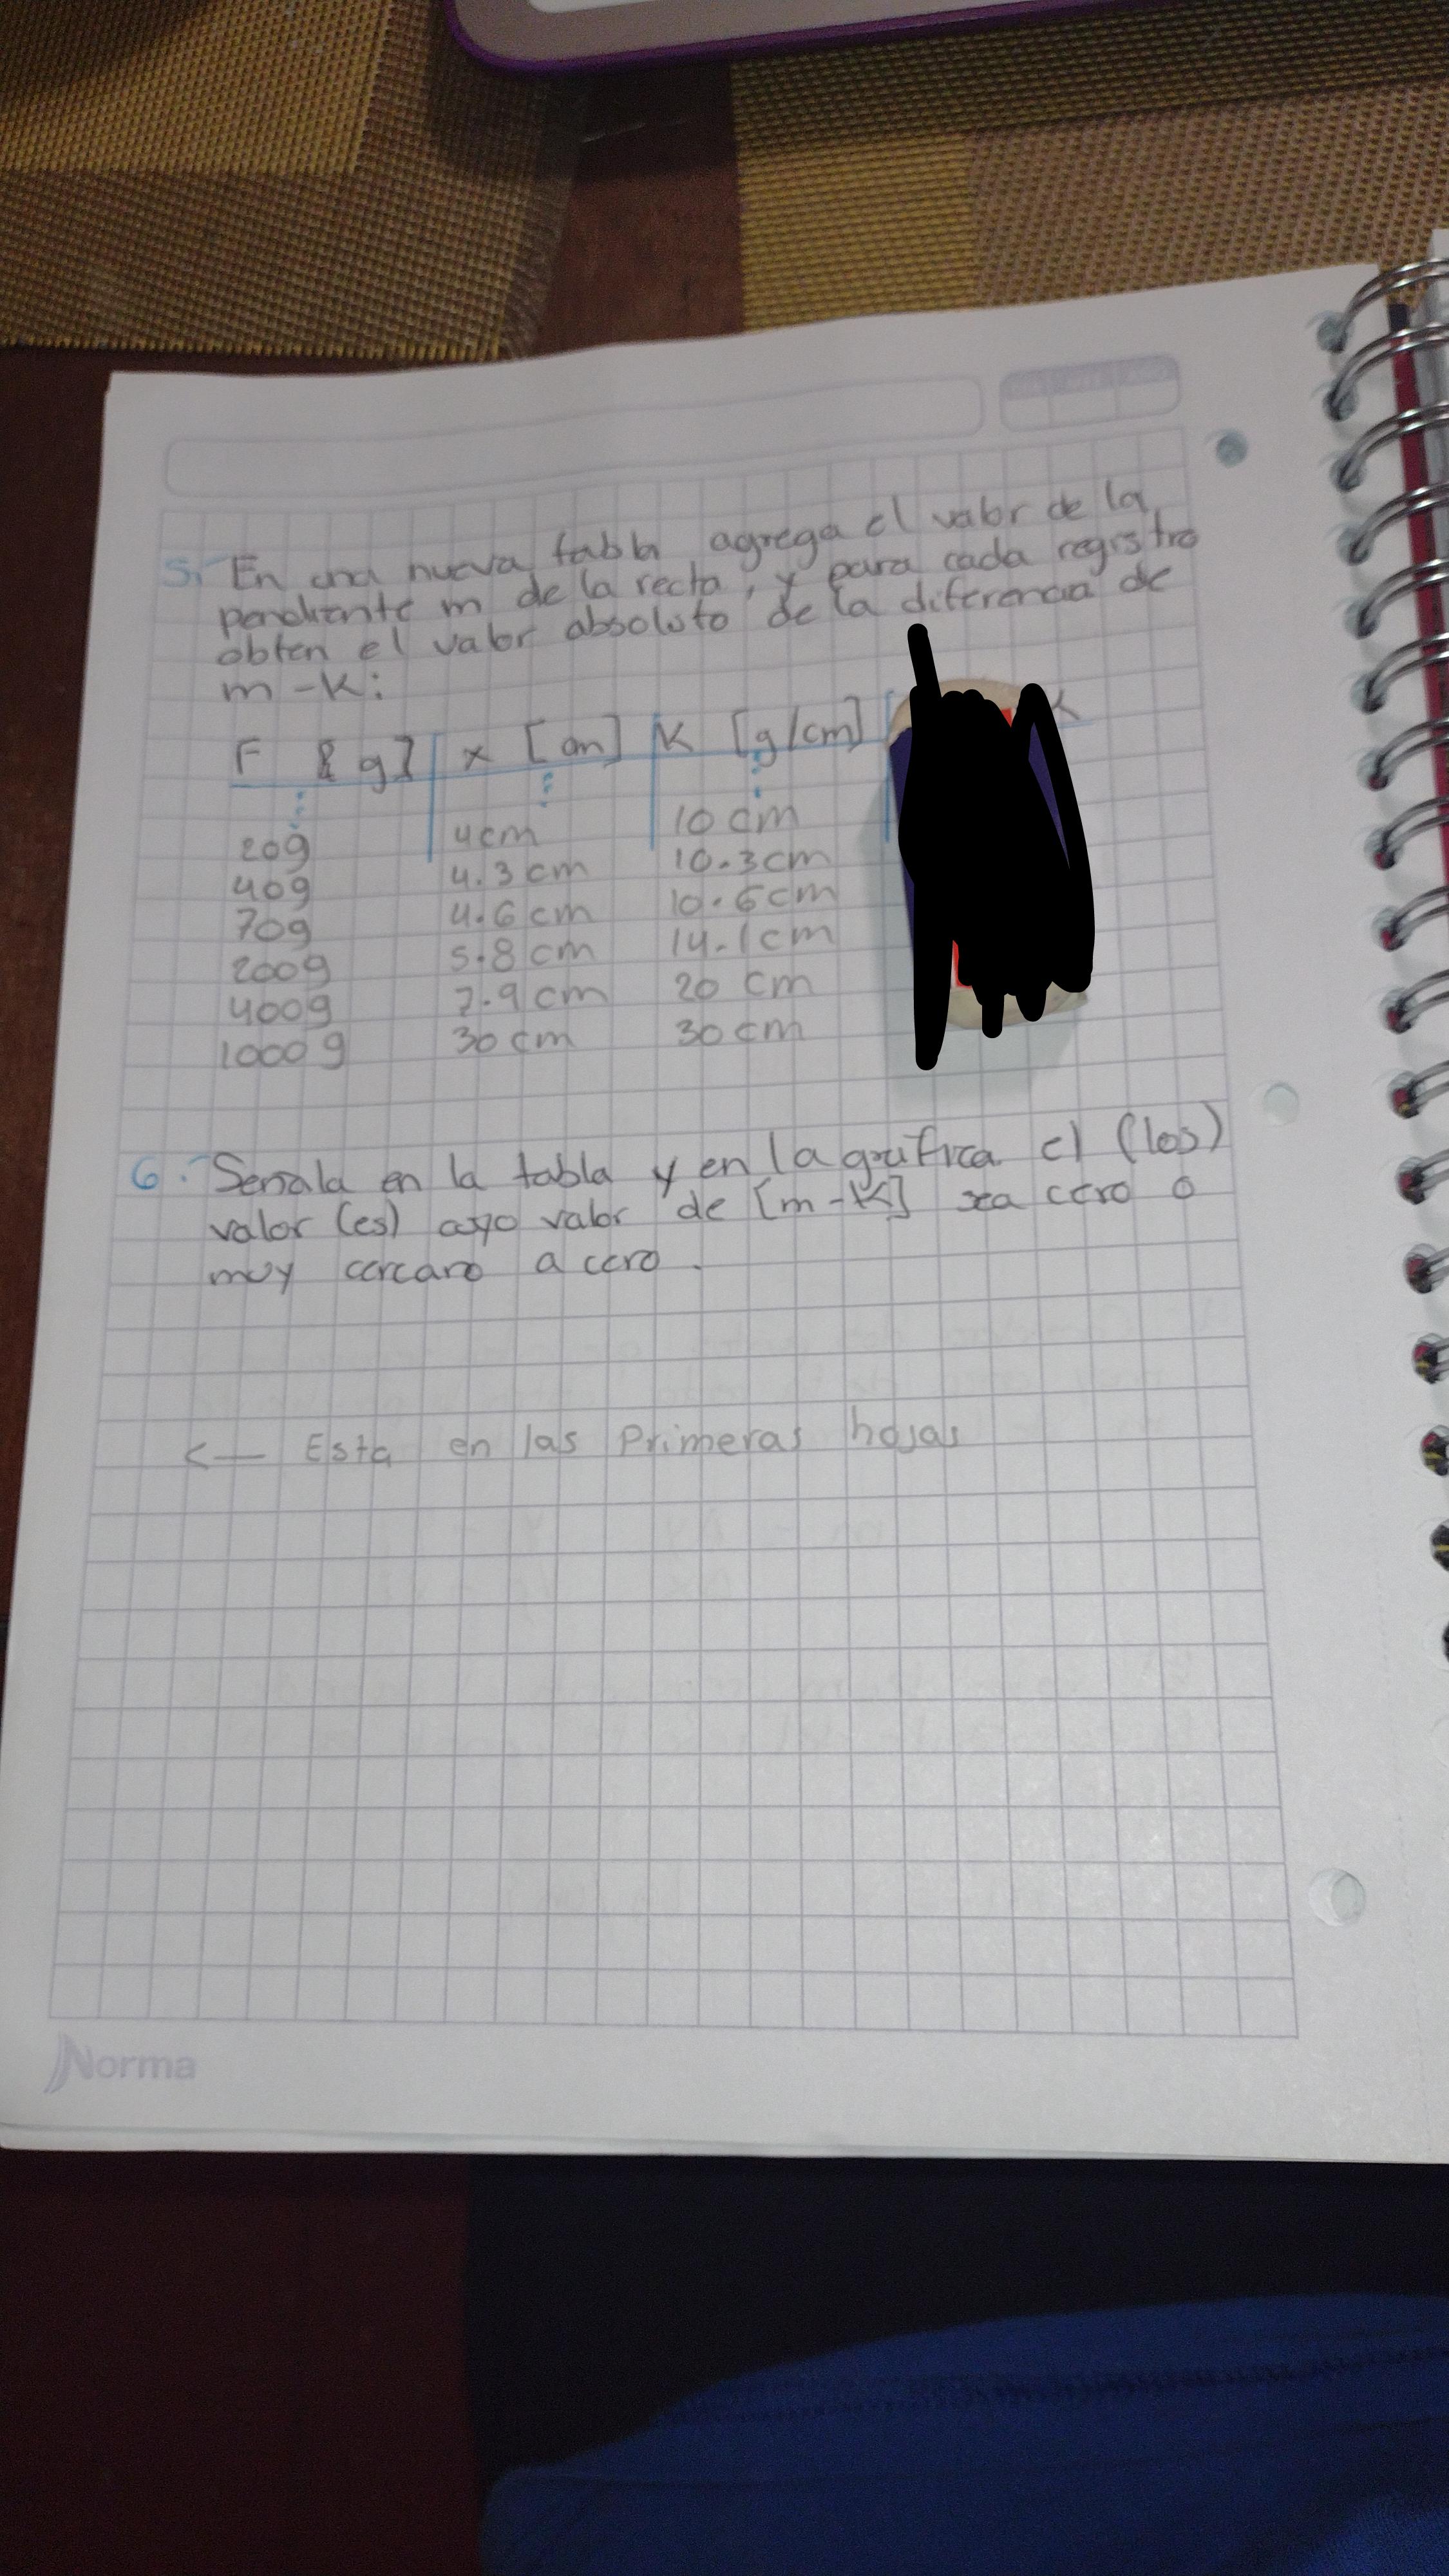 5. En una nueva tabla agrega el valor de la
pendiente m de la recta, y para cada registro
obten el valor absoluto de la diferencia de
m - K:
F [g] x [cm] K [g/cm] K
20g 4cm 10 cm
40g 4.3 cm 10.3cm
70g 4.6 cm 10.6cm
200g 5.8 cm 14.1cm
400g 7.9 cm 20 cm
1000 g 30 cm 30 cm
6. Senala en la tabla y en la grafica el (los)
valor (es) cuyo valor de [m - K] sea cero o
muy cercano a cero.
<— Esta en las Primeras hojas
Norma